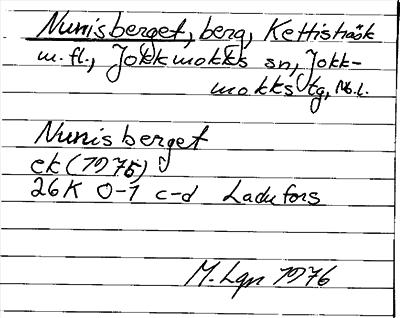 Nunisberget, berg, Kettisträsk
m.fl., Jokkmokks sn, Jokk-
mokks tg, Nb.l.
Nunisberget
ek (1975)
26K 0-1 c-d Ladufors
M. Lgn 1976